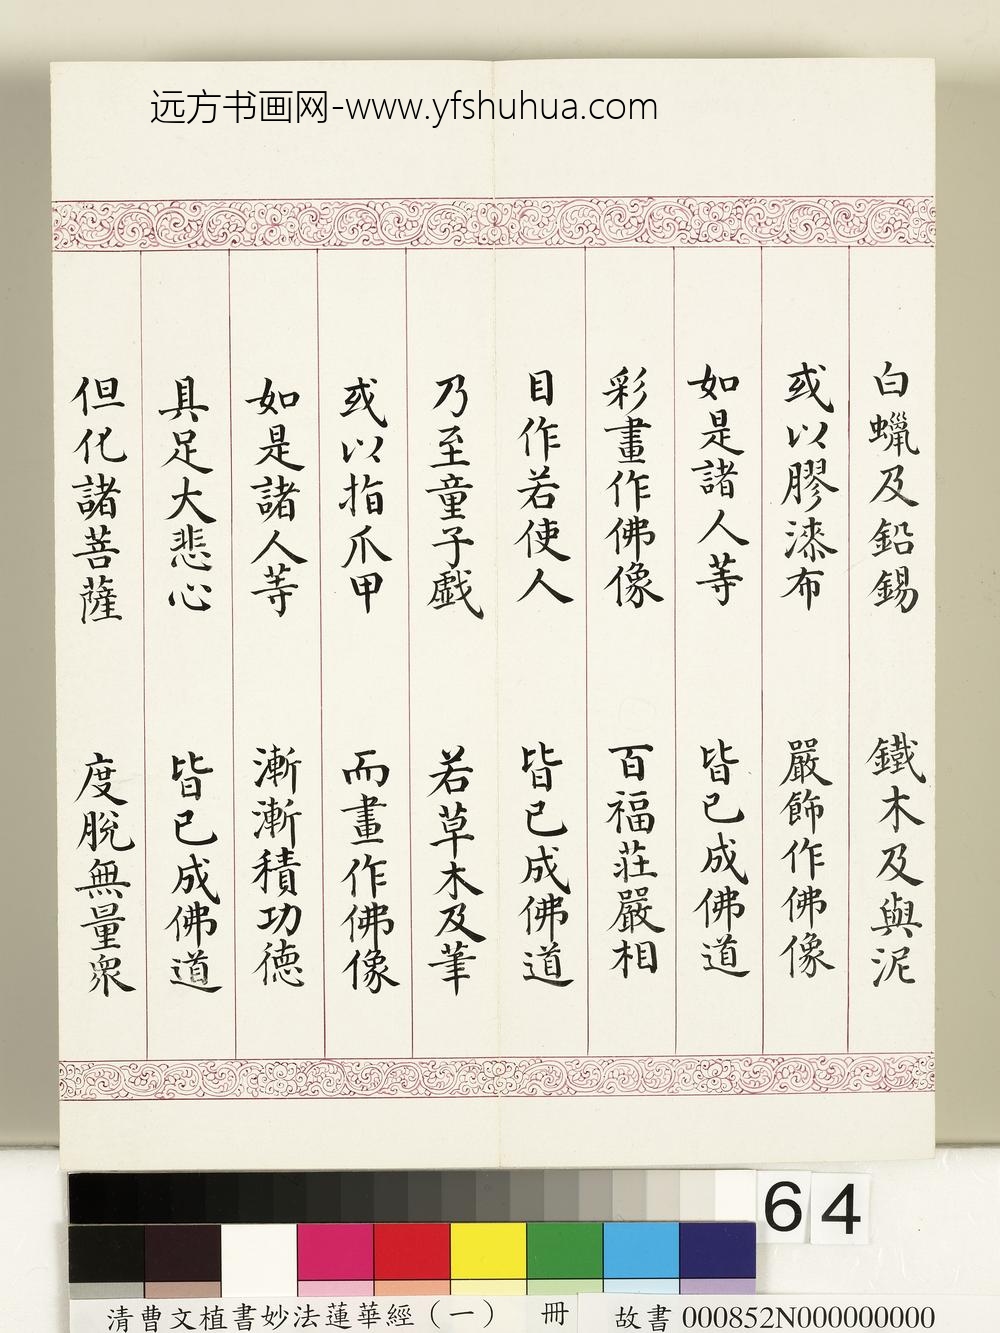 远方书画网-www.yfshuhua.com
白蠟及鉛錫　鐵木及與泥
或以膠漆布　嚴飾作佛像
如是諸人等　皆已成佛道
彩畫作佛像　百福莊嚴相
自作若使人　皆已成佛道
乃至童子戲　若草木及筆
或以指爪甲　而畫作佛像
如是諸人等　漸漸積功德
具足大悲心　皆已成佛道
但化諸菩薩　度脫無量眾
64
清曹文植書妙法蓮華經（一）　冊　故書 000852N000000000